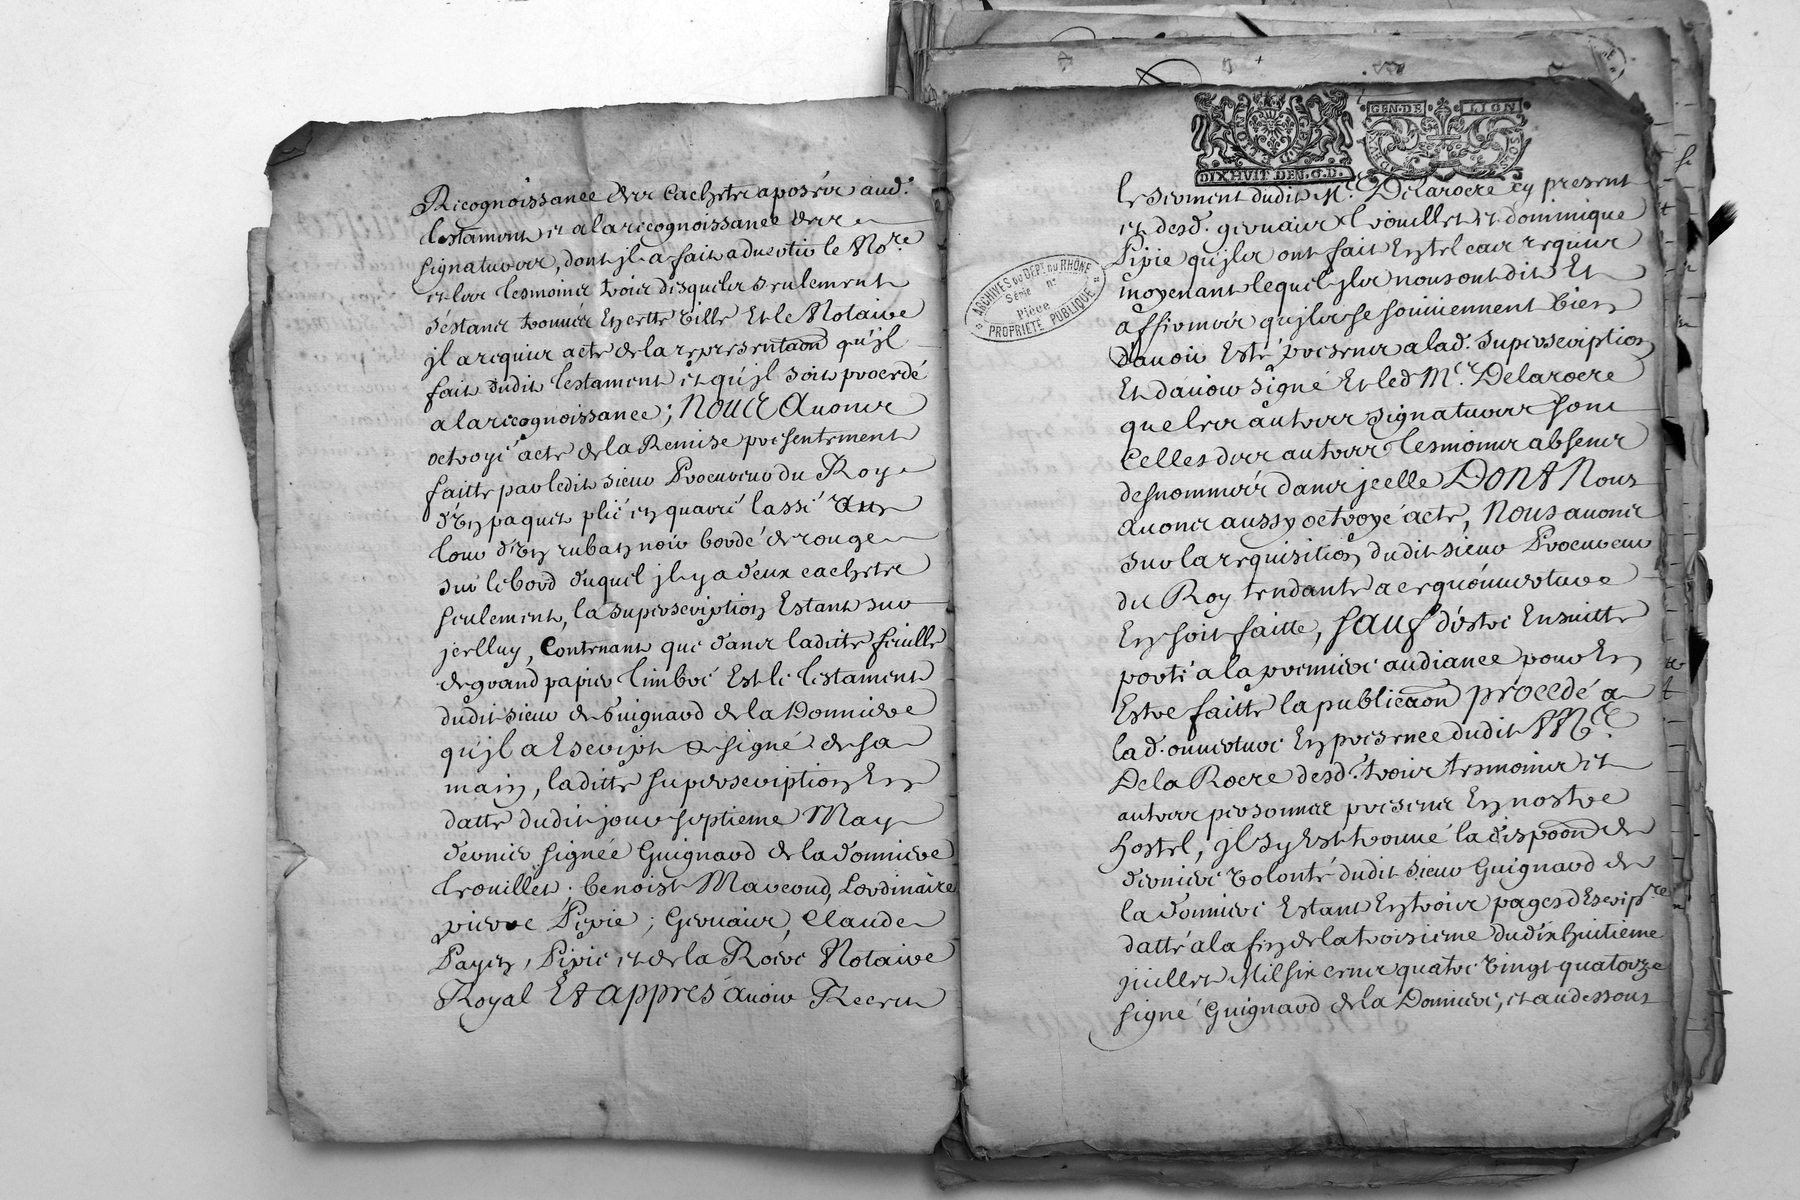 Recognoissance des cachets aposés aud.
testament et a la recognoissance des
signatures, dont jl a fait advertir le No.re
et les tesmoins trois desquels seulement
s'estant trouvés En cette ville Et le Notaire
jl a requis acte de la representaon qu'jl
fait dudit testament et qu'jl soit procedé
a la recognoissance; Nous Avons
octroyé acte de la Remise presentement
faitte par ledit sieur Procureur du Roy
d'Un paquet plié en quarré lassé au
tour d'Un ruban noir bordé de rouge
sur le bord duquel jl y a deux cachets
seulement, la superscription Estant sur
jcelluy, Contenant que dans laditte feuille
de grand papier timbré Est le testament
dudit sieur de Guignard de la Donniere
qu'jl a Escript & signé de sa
main, laditte superscription En
datte dudit jour septieme May
dernier signée Guignard de la donniere
trouillet. benoist Marcoud, Lordinaire
pierre Pipie; Gervais, Claude
Payen, Pipie et de la Roere Notaire
Royal Et appres avoir Receu
le serment dudit M.e Delaroere cy present
et desd. gervais trouillet et dominique
Pipie qu'jls ont fait En tel cas requis
moyenant lequel jls nous ont dit Et
affirmer qu'jls se souviennent bien
d'avoir Esté presens a lad. superscription
Et d'avoir signé Et led M.e Delaroere
que les autres signatures sont
Celles des autres tesmoins absens
desnommés dans jcelle DONT Nous
avons aussy octroyé acte, Nous avons
sur la requisition dudit sieur Procureur
du Roy tendante a ce qu'ouverture
En soit faitte, Sauf d'estre Ensuitte
porté a la premiere audiance pour En
Estre faitte la publicaon procedé a
la d. ouverture En presence dudit M.e
De la Roere desd. trois tesmoins et
autres personnes presens En nostre
hostel, jl s'y Est trouvé la dispoon de
derniere volonté dudit sieur Guignard de
la donniere Estant En trois pages d'Escip.re
datté a la fin de la troisieme du dix huitieme
juillet Mil six cens quatre vingt quatorze
signé Guignard de la Donniere, et au dessous
DIXHVIT DEN. G.D.
GEN.DE LION
ARCHIVES DU DÉP.T DU RHÔNE
Série n°
Pièce
PROPRIÉTÉ PUBLIQUE